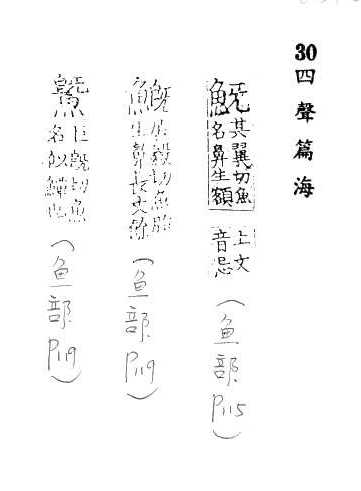 30四聲篇海
其翼切魚
名鼻生額
上文
音忌
(魚部P115)
生毅切魚脂
生鼻長丈餘
(魚部P119)
巨旣切魚
名似鱓也
(魚部P119)